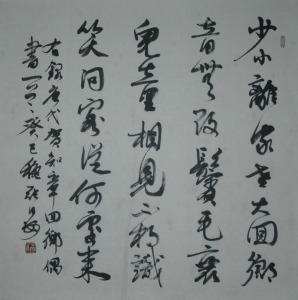 少小離家老大回鄉
音無改鬢毛衰
兒童相見不相識
笑問客從何處來
右錄唐代賀知章回鄉偶
書一首癸巳穐